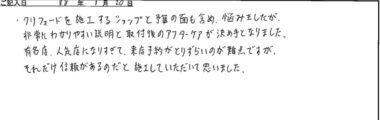 ご記入日 28年1月20日
・クリフォードを施工するショップと予算の面も含め、悩みましたが、
非常にわかりやすい説明と取付後のアフターケアが決め手となりました。
有名店、人気店になりすぎて、来店予約がとりずらいのが難点ですが、
それだけ信頼があるのだと施工していただいて思いました。